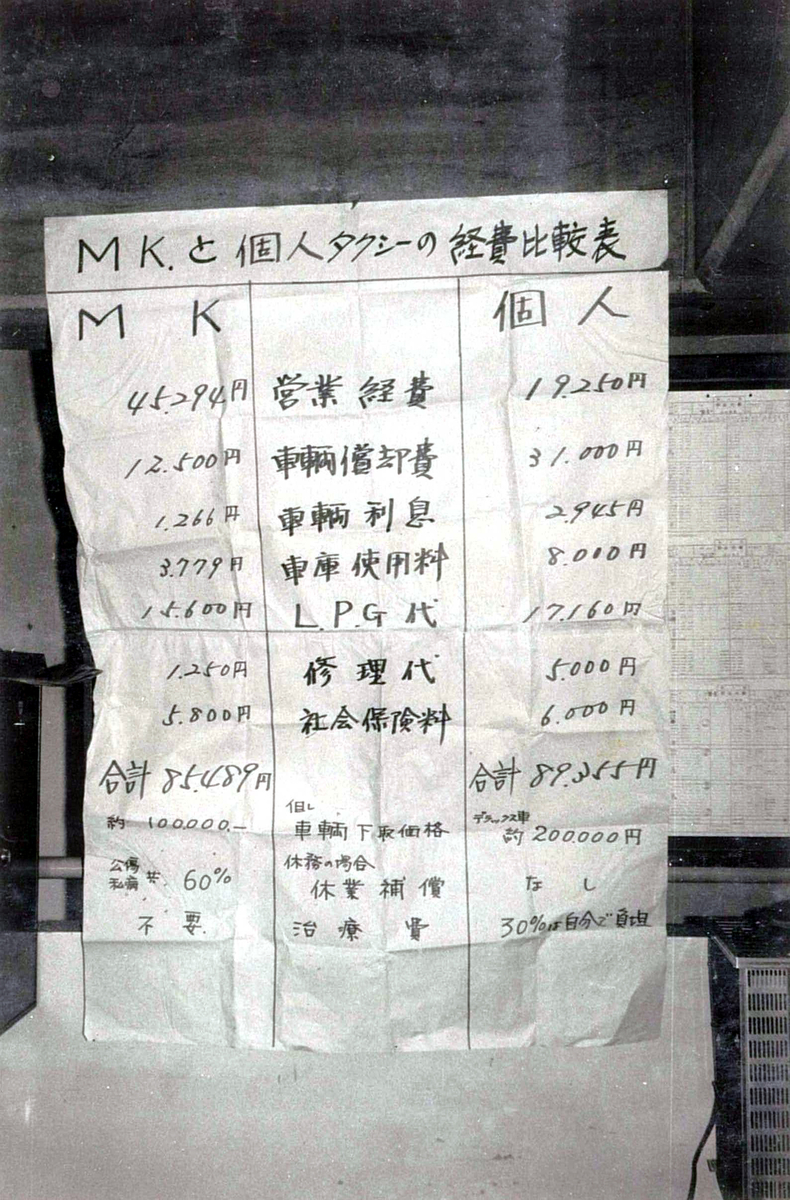 MK.と個人タクシーの経費比較表
MK 個人
45.294円 営業経費 19.250円
12.500円 車輌償却費 31.000円
1.266円 車輌利息 2.945円
3.779円 車庫使用料 8.000円
15.600円 L.P.G代 17.160円
1.250円 修理代 5.000円
5.800円 社会保険料 6.000円
合計 85.489円 合計 89.355円
約 100.000.- 但し 車輌下取価格 デラックス車 約 200.000円
公傷 私病 共 60% 休務の場合 休業補償 なし
不要. 治療費 30%は自分で負担